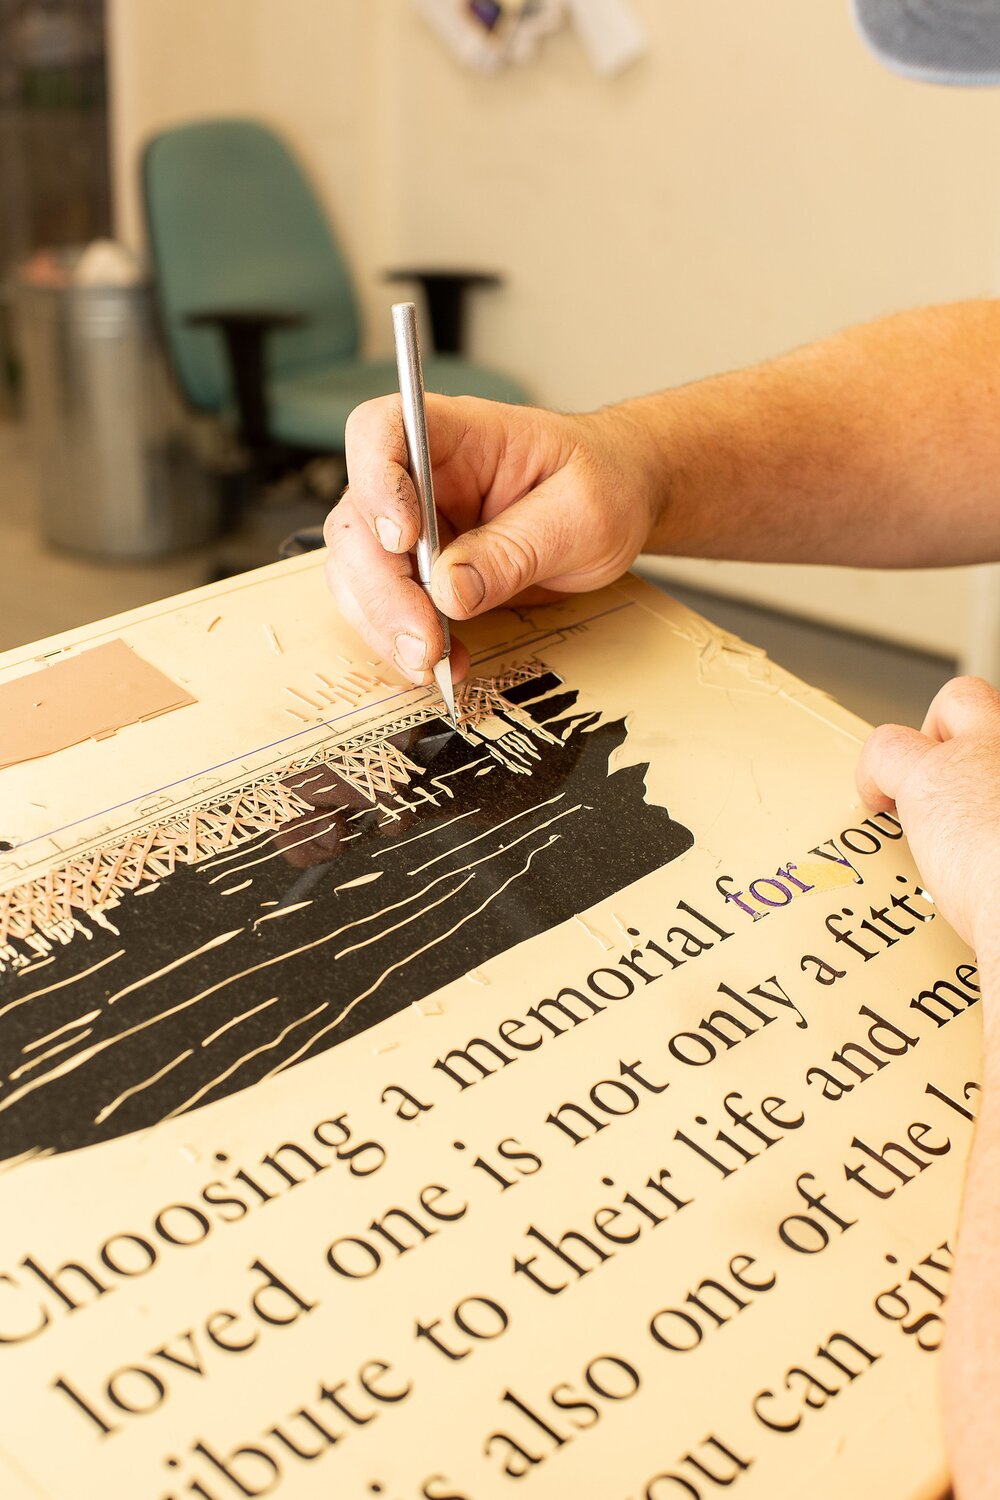 Choosing a memorial for you
loved one is not only a fitti
ribute to their life and me
is also one of the la
ou can giv